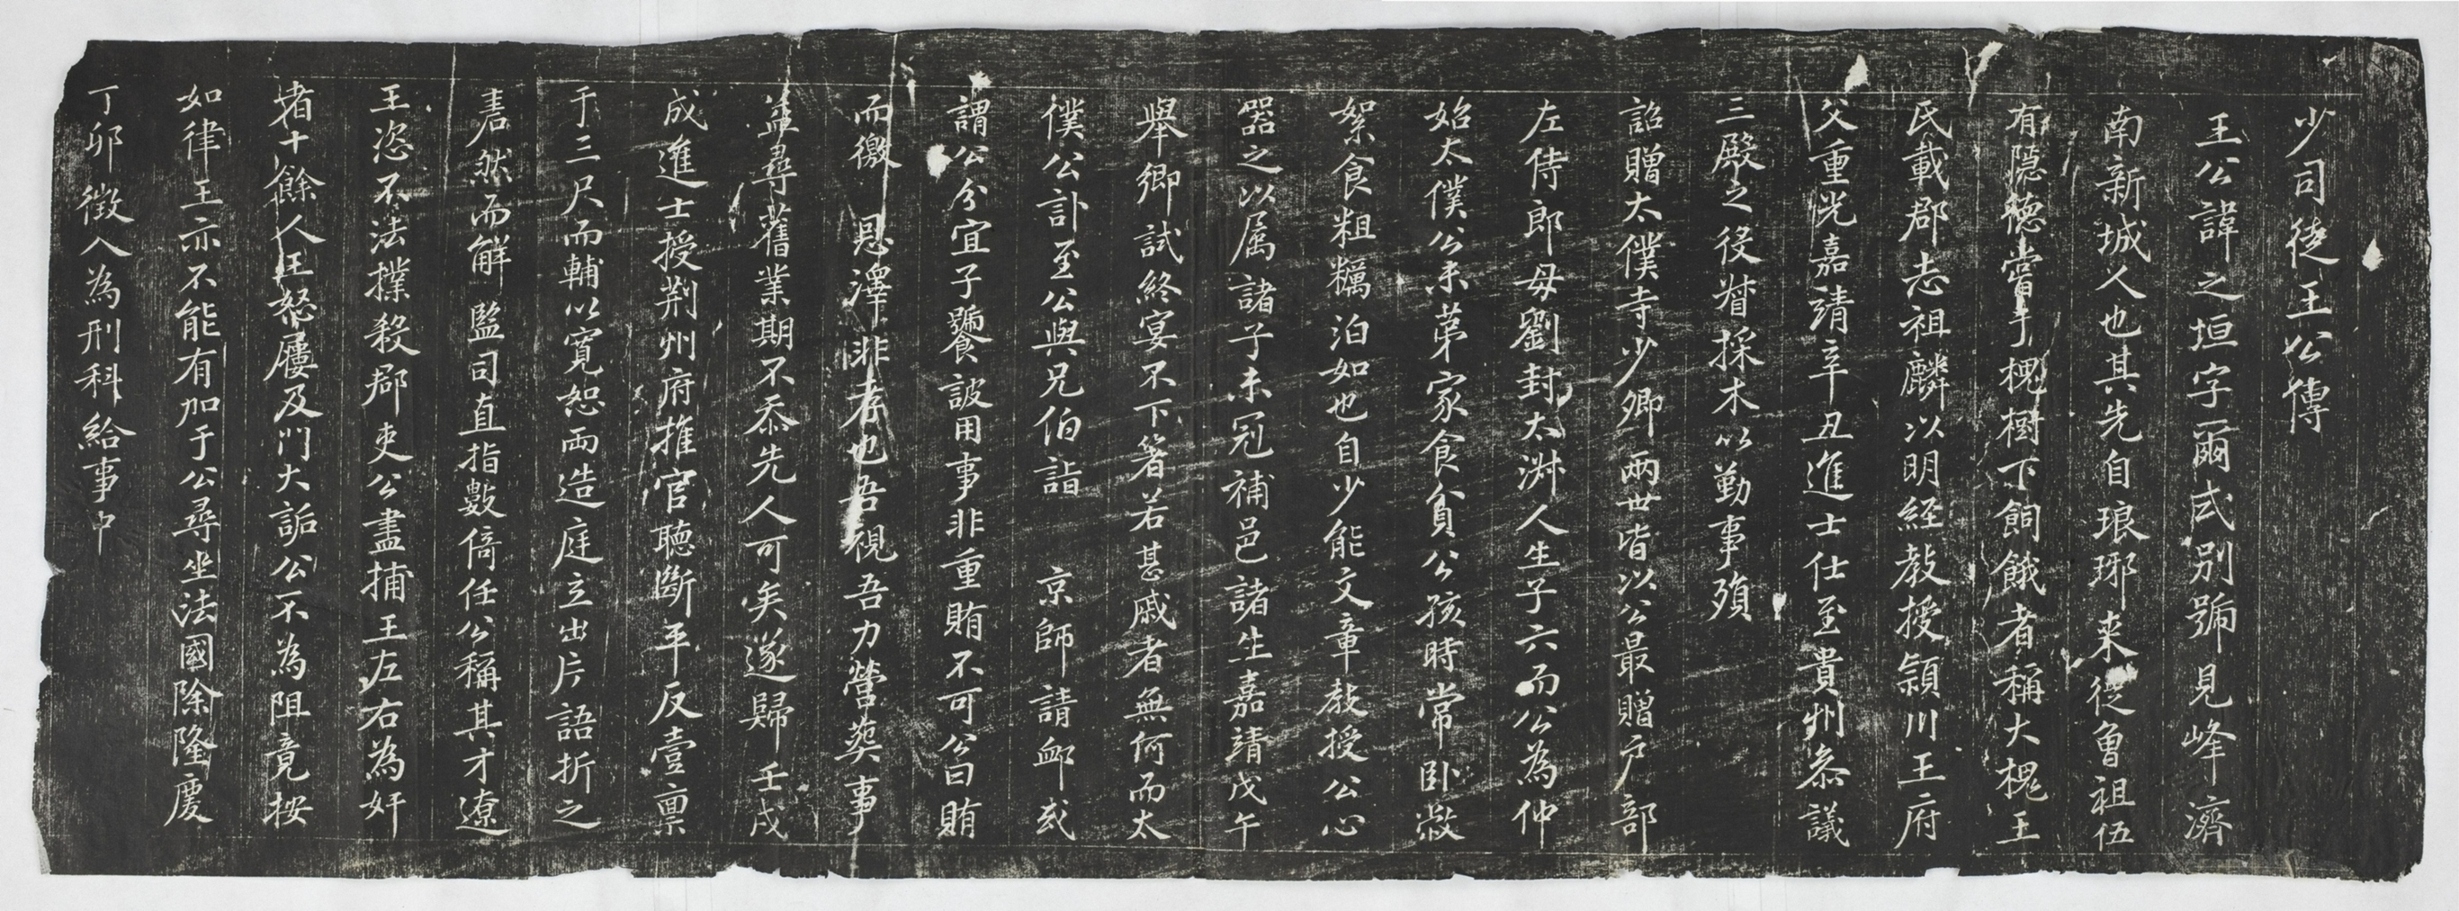 少司徒王公傳
王公諱之垣字爾式別號見峰濟
南新城人也其先自琅琊来徙魯祖伍
有隱德嘗于槐樹下飼餓者稱大槐王
氏載郡志祖麟以明經教授潁川王府
父重光嘉靖辛丑進士仕至貴州叅議
三殿之役督採木以勤事殞
詔贈太僕寺少卿兩世皆以公最贈户部
左侍郎母劉封太淑人生子六而公為仲
始太僕公未第家食貧公孩時常卧敝
絮食粗糲泊如也自少能文章教授公心
器之以属諸子未冠補邑諸生嘉靖戊午
舉鄉試終宴不下箸若甚戚者無何而太
僕公訃至公與兄伯詣 京師請卹或
謂公分宜子饕詖用事非重賄不可公曰賄
而徼 恩澤非孝也吾視吾力營葬事
益尋舊業期不忝先人可矣遂歸 壬戌
成進士授荆州府推官聽斷平反壹禀
于三尺而輔以寛恕兩造庭立出片語折之
砉然而解監司直指數倚任公稱其才遼
王恣不法撲殺郡吏公盡捕王左右為奸
者十餘人王怒屢及門大詬公不為阻竟按
如律王亦不能有加于公尋坐法國除隆慶
丁卯 徵入為刑科給事中